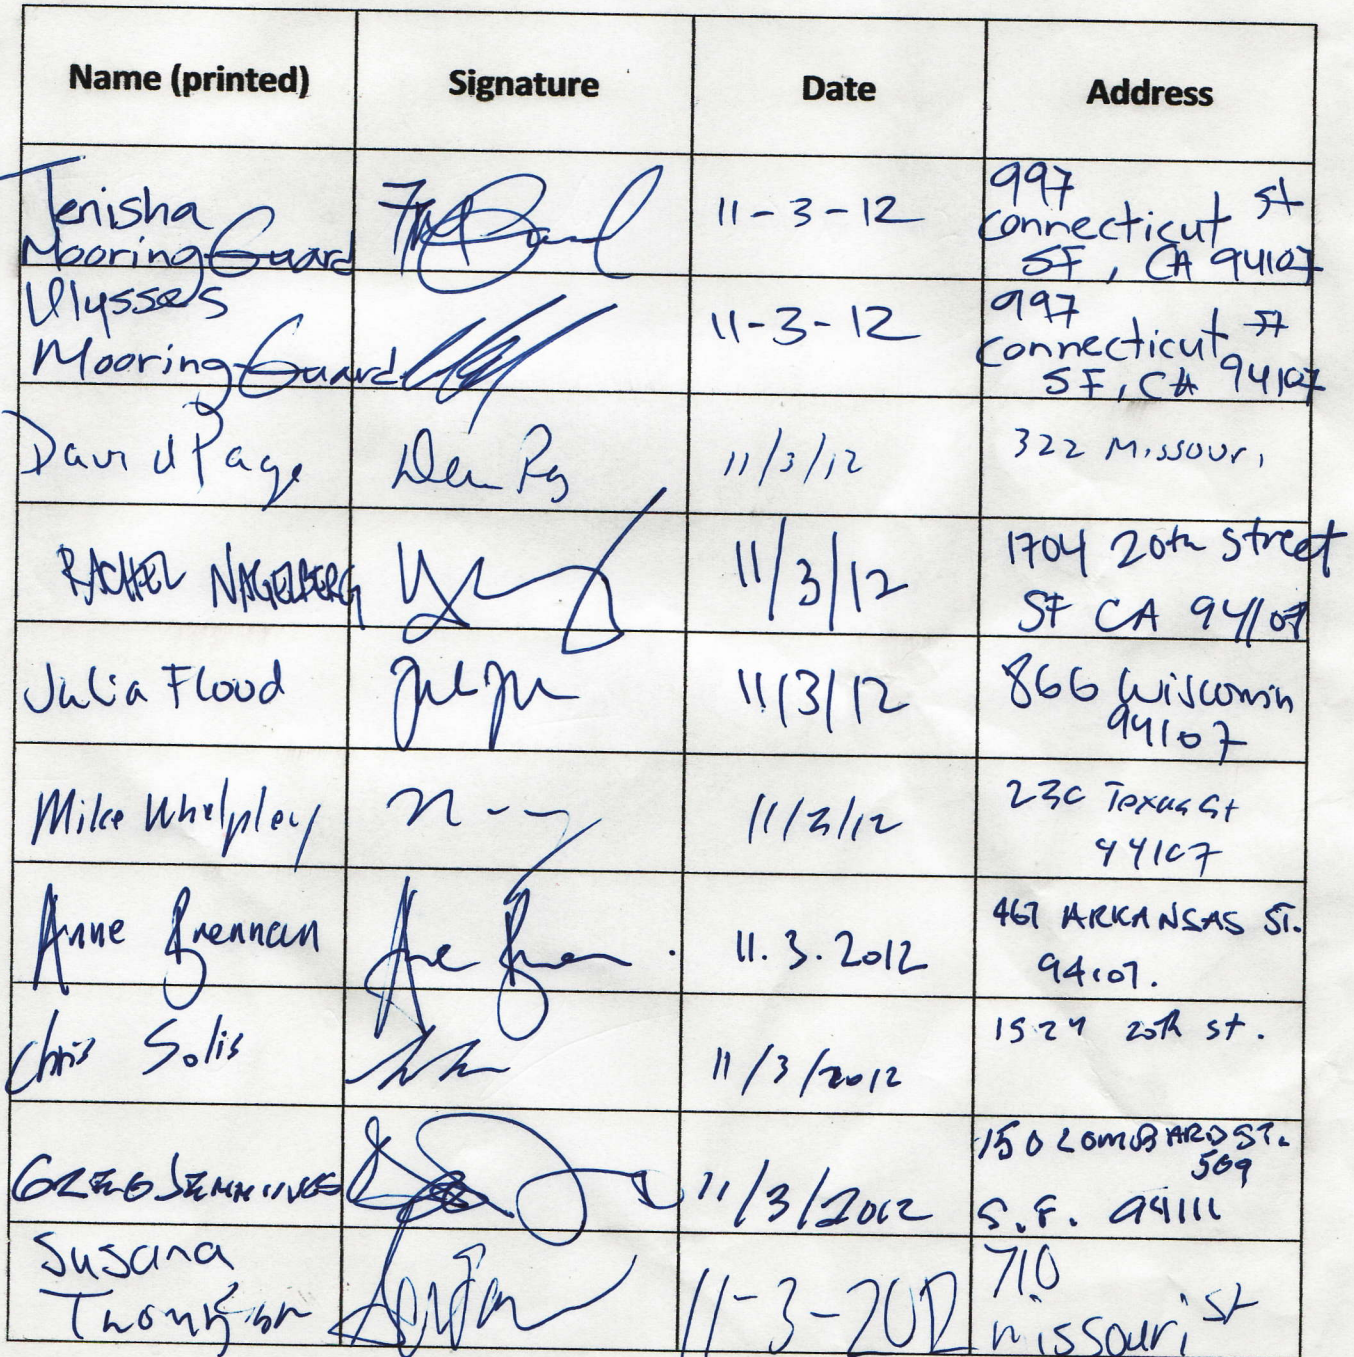 Name (printed) Signature Date Address
Tenisha
Mooring-Guard
11-3-12
997
Connecticut St
SF, CA 94107
Ulysses
Mooring-Guard
11-3-12
997
Connecticut St
SF, CA 94107
David Page
11/3/12
322 Missouri
RACHEL NAGELBERG
11/3/12
1704 20th Street
SF CA 94107
Julia Flood
11/3/12
866 Wisconsin
94107
Mike Whelpley
11/3/12
230 Texas St
94107
Anne Brennan
Anne Brennan
11.3.2012
467 ARKANSAS ST.
94107.
Chris Solis
11/3/2012
1524 20th St.
GREG JENNINGS
11/3/2012
150 LOMBARD ST.
509
S.F. 94111
Susana
Thompson
11-3-2012
710
Missouri St